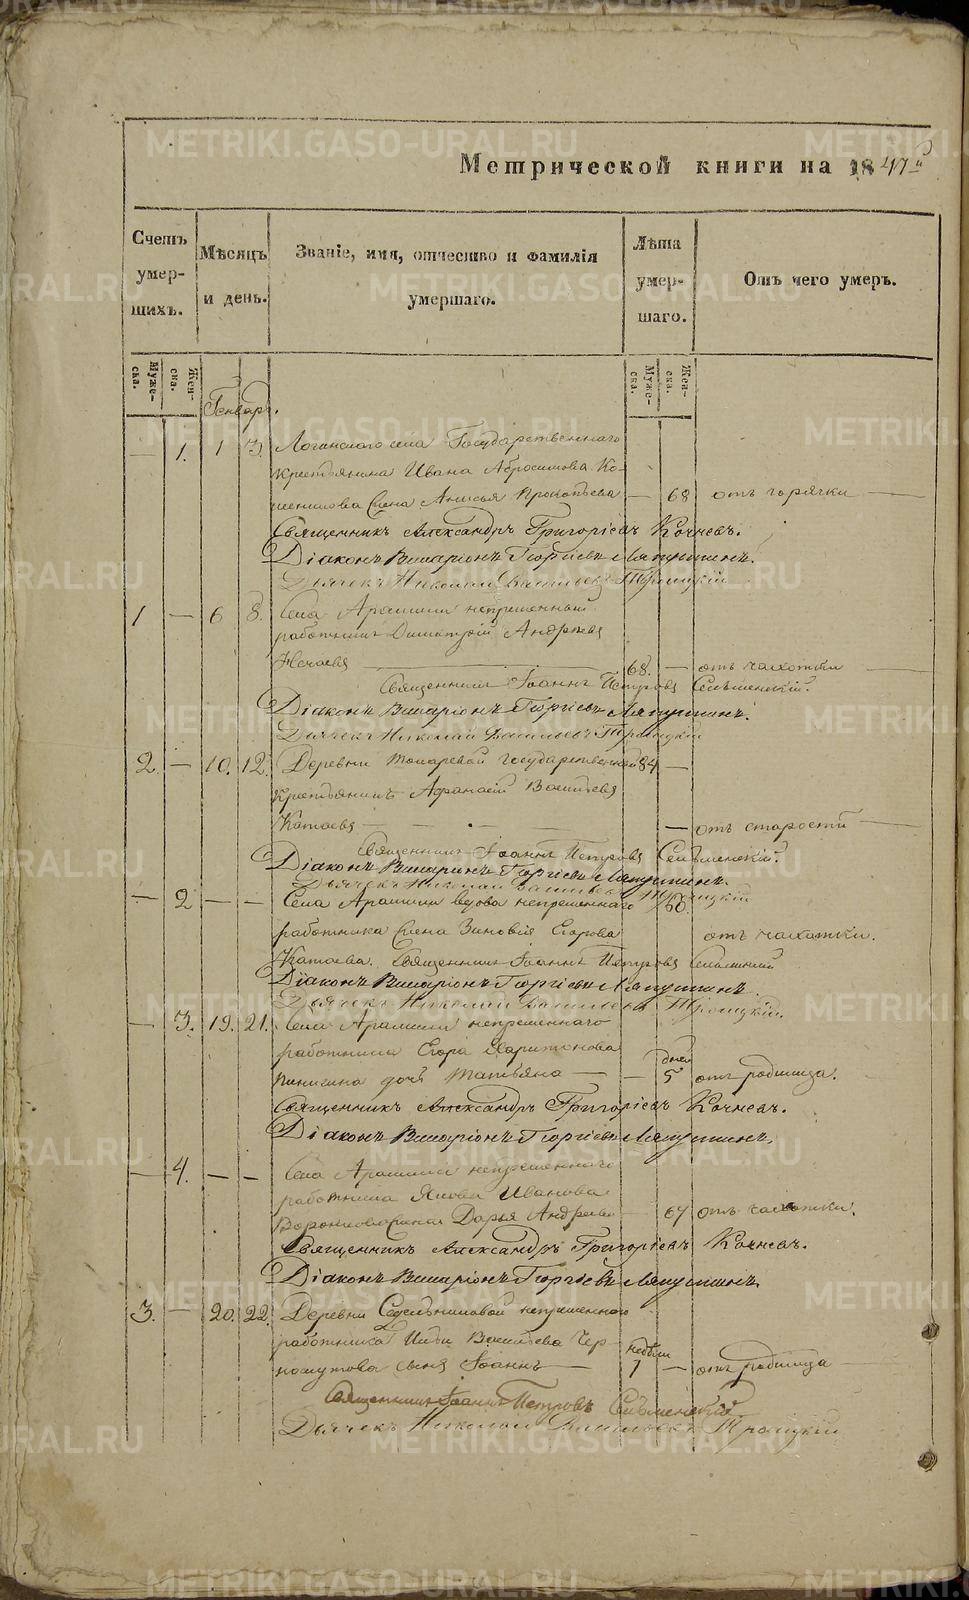 Метрической книги на 1847й
Счетъ умер-шихъ.
Мѣсяцъ и день.
Званіе, имя, отчество и фамилія умершаго.
Лѣта умер-шаго.
Отъ чего умеръ.
Муже-ска.
Жен-ска.
Муже-ска.
Жен-ска.
Генварь.
1. 1 3. Логинскаго села Государственнаго
крестьянина Ивана Абросимова Ко-
жена Анисья Прокопьева — 68 отъ горячки
Священникъ Александръ Григоріевъ Кочневъ.
Діаконъ Виларіонъ Георгіевъ Ляпустинъ.
Дьячекъ Николай Васильевъ Троицкій
1 — 6 8. Села Арамили непременный
работникъ Димитрій Андреевъ
Нечаевъ 68. — отъ чахотки
Священникъ Іоаннъ Петровъ
Діаконъ Виларіонъ Георгіевъ Ляпустинъ.
Дьячекъ Николай Васильевъ Троицкій
2. — 10. 12. Деревни Токаревой государственной 84 —
крестьянинъ Афанасій Васильевъ
Катаевъ — — — — отъ старости
Священникъ Іоаннъ Петровъ
Діаконъ Виларіонъ Георгіевъ Ляпустинъ.
Дьячекъ Николай Васильевъ Троицкій
— 2 — — Села Арамили вдова непременнаго 60.
работника жена Зиновія Егорова отъ чахотки.
Катаева. Священникъ Іоаннъ Петровъ
Діаконъ Виларіонъ Георгіевъ Ляпустинъ.
Дьячекъ Николай Васильевъ Троицкій.
— 3. 19. 21. Села Арамили непременнаго
работника Егора Харитонова
дочь Татьяна — — дней 5 отъ родимца.
Священникъ Александръ Григоріевъ Кочневъ.
Діаконъ Виларіонъ Георгіевъ Ляпустинъ.
— 4. — — Села Арамили непременнаго
работника Якова Иванова
Дарья Андреева — 67 отъ чахотки.
Священникъ Александръ Григоріевъ Кочневъ.
Діаконъ Виларіонъ Георгіевъ Ляпустинъ.
3. — 20. 22. Деревни Седельниковой непременнаго
работника Васильева Чер-
сынъ Іоаннъ — недели 1 — отъ родимца
Священникъ Іоаннъ Петровъ
Дьячекъ Николай Васильевъ Троицкій
METRIKI.GASO-URAL.RU